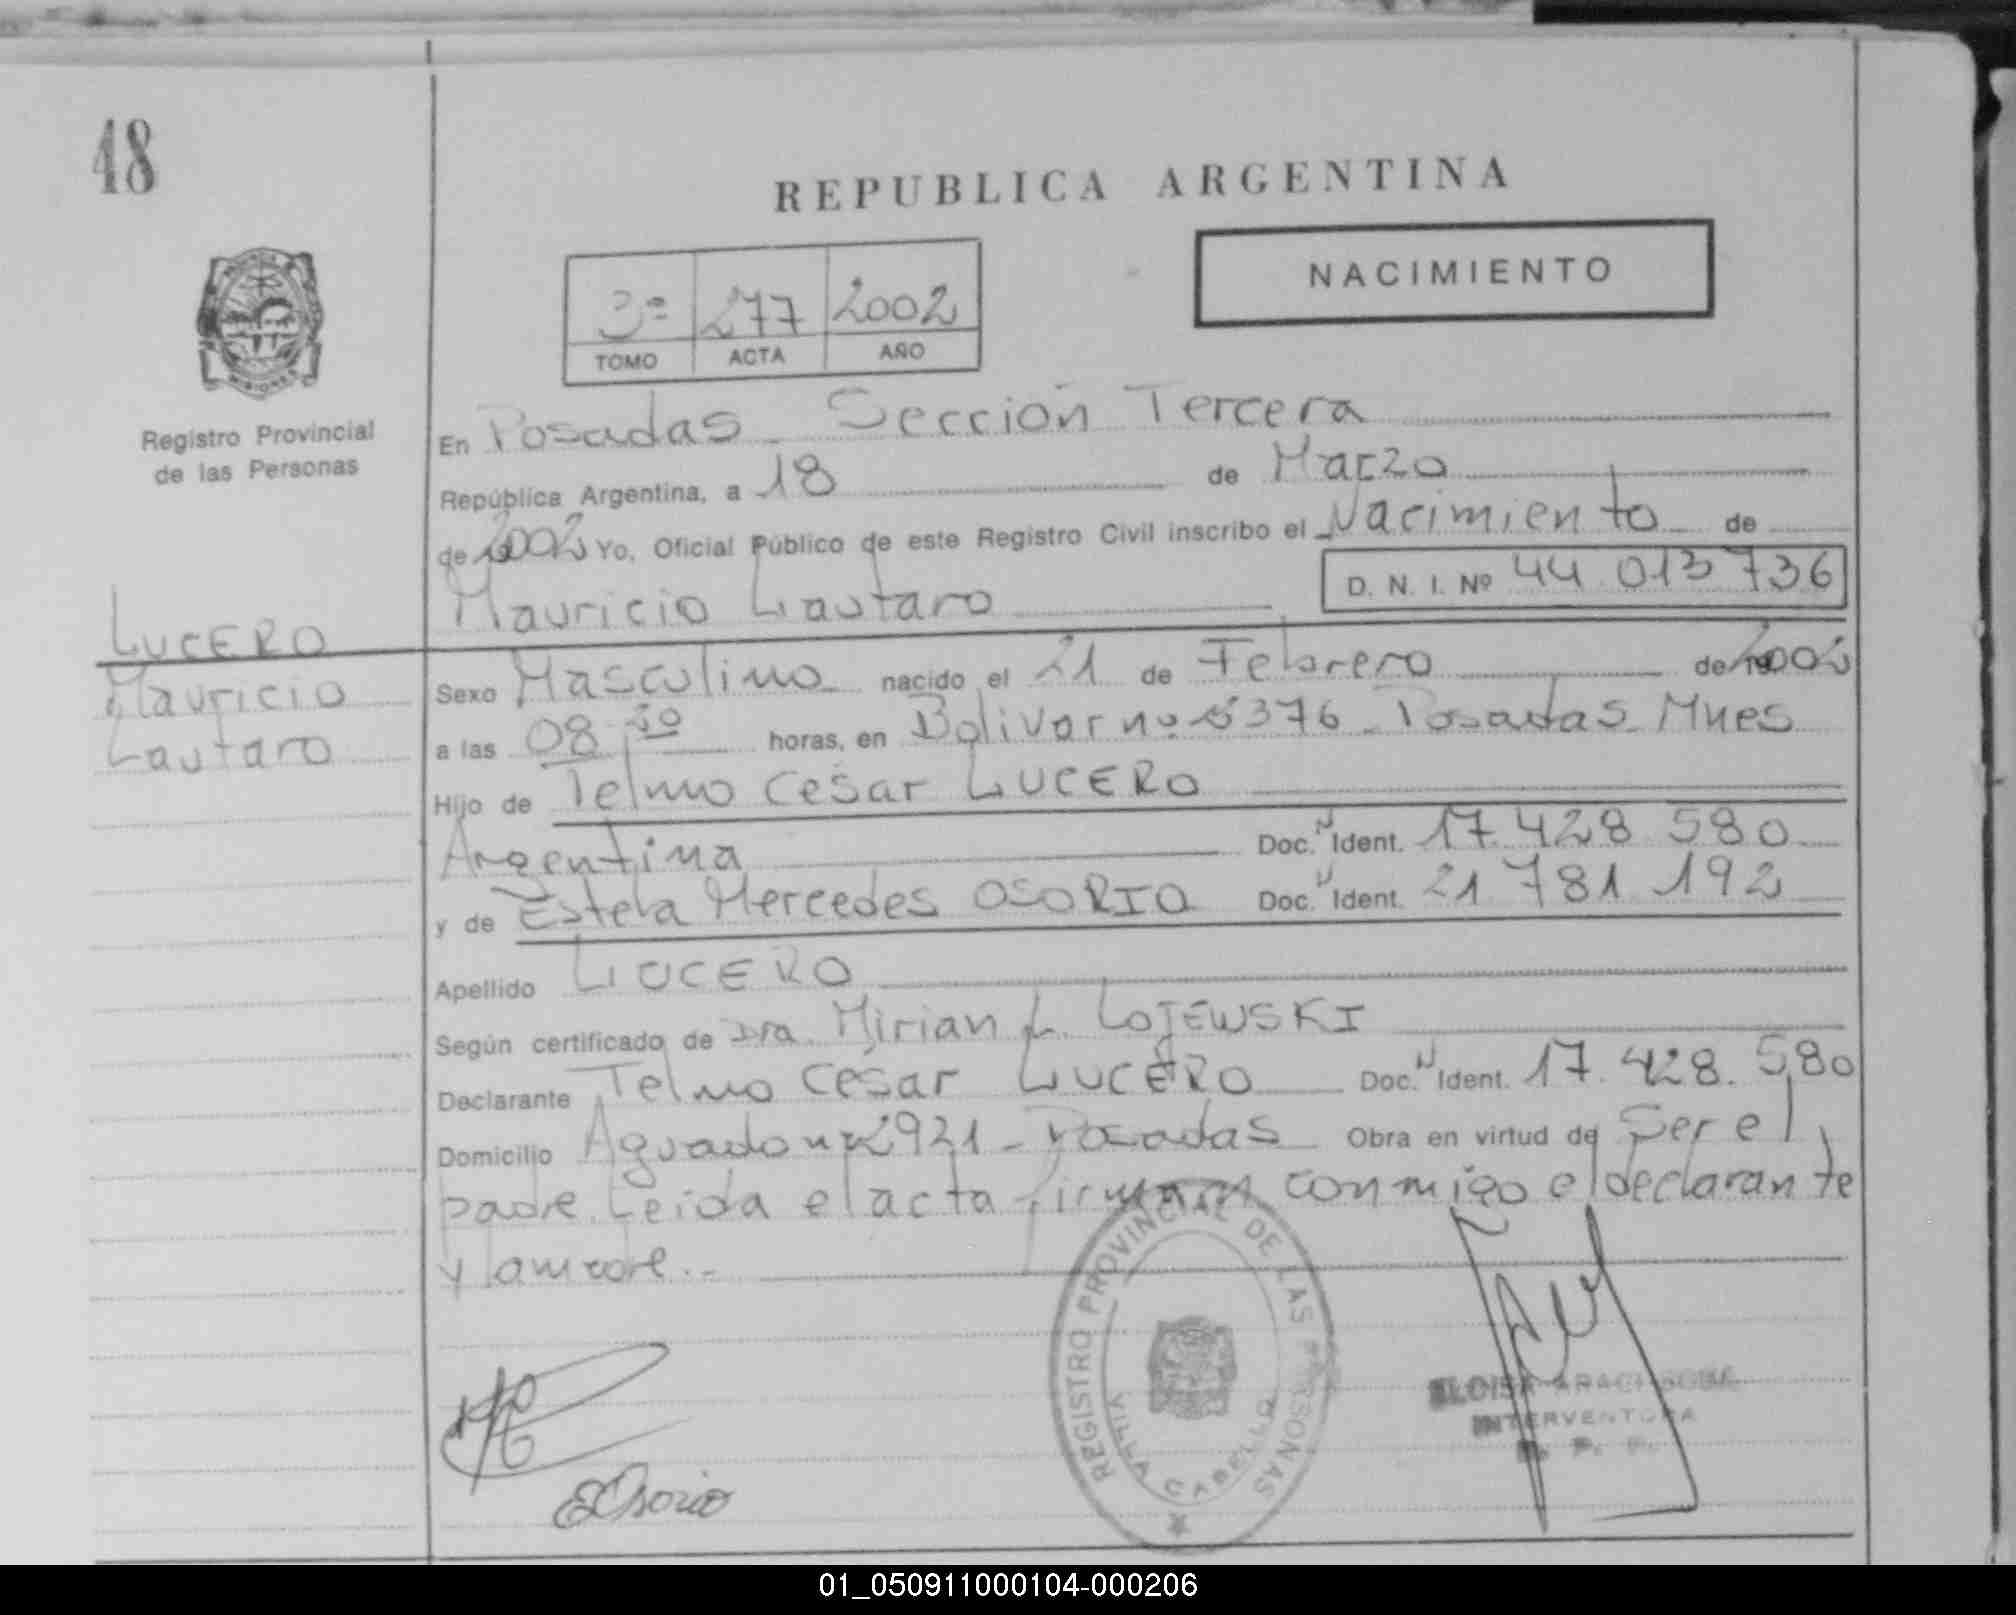 48
REPUBLICA ARGENTINA
NACIMIENTO
3º 277 2002
TOMO ACTA AÑO
Registro Provincial
de las Personas
En Posadas - Sección Tercera
República Argentina, a 18 de Marzo
de 2002 Yo, Oficial Público de este Registro Civil inscribo el Nacimiento de
Mauricio Lautaro D. N. I. Nº 44.013.736
LUCERO
Mauricio
Lautaro
Sexo Masculino nacido el 21 de Febrero de 2002
a las 08 horas, en Bolivar nº 5376 - Posadas Mnes
Hijo de Telmo César LUCERO
Argentina Doc. N Ident. 17.428.580
y de Estela Mercedes OSORIO Doc. N Ident. 21.781.192
Apellido LUCERO
Según certificado de Dra. Mirian L. LOJEWSKI
Declarante Telmo César LUCERO Doc. N Ident. 17.428.580
Domicilio Aguado nº 2921 - Posadas Obra en virtud de Ser el
padre. Leida el acta firman conmigo el declarante
y la madre.-
EOsorio
REGISTRO PROVINCIAL DE LAS PERSONAS
VILLA CABELLO
ELOISA ARACI
INTERVENTORA
R. P. P.
01_050911000104-000206